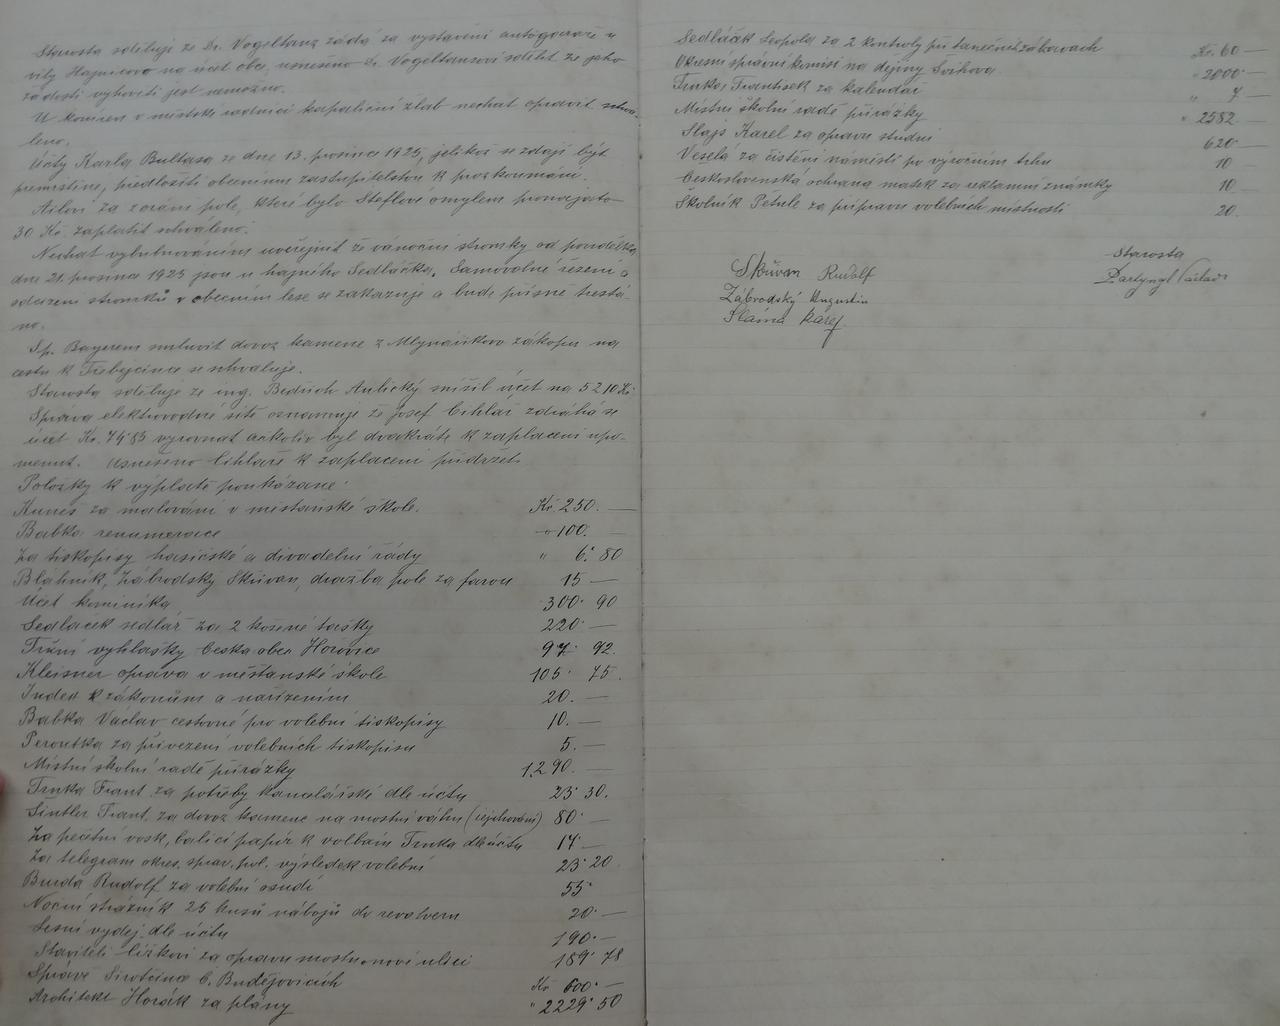 Starosta sděluje že Dr. Vogeltanz žádá za vystavení
vily Hájnicovo na účet obce, usneseno Dr. Vogeltanzovi sdělit že jeho
žádosti vyhověti jest nemožno.
U komína v městské radnici kapaliční žlab nechat opravit schvá-
leno.
Účty Karla Bultasa ze dne 13. prosince 1925, jelikož se zdají být
přemrštěné, předložiti obecnímu zastupitelstvu k prozkoumání.
za zorání pole, které bylo Steflové omylem pronajato
30 Kč. zaplatit schváleno.
Nechat vybubnováním uveřejnit že vánoční stromky od pondělka
dne 21. prosince 1925 jsou u hajného Sedláčka. Samovolné řezání a
odcizení stromků v obecním lese se zakazuje a bude přísně trestá-
no.
Sp. Bayerem smluvit dovoz kamene z Mlynářkova zákopu na
cestu k Třebýcince se schvaluje.
Starosta sděluje že ing. Bedřich Aulický snížil účet na 5210 Kč
Správa elektrovodné sítě oznamuje že Josef Cihlář zdráhá se
účet Kč. 74.85 vyrovnat ačkoliv byl dvakráte k zaplacení upo-
menut. Usneseno Cihláře k zaplacení přidržet.
Položky k výplatě poukázané:
Kuneš za malování v měšťanské škole. Kč 250.—
Babka renumerace " 100.—
Za tiskopisy hasičské a divadelní řády " 6. 80
Bláhník, Zábrodský Skřivan, dražba pole za farou 15 —
Účet kominíka 300. 90
Sedláček sedlář za 2 kožené tašky 220.—
Tržní vyhlášky Česka obec Hořovice 97. 92.
Kleisner oprava v měšťanské škole 105. 75.
Index k zákonům a nařízením 20.—
Babka Václav cestovné pro volební tiskopisy 10.—
Peroutka za přivezení volebních tiskopisů 5.—
Místní školní radě přirážky 1290.—
Trnka Frant. za potřeby kancelářské dle účtu 23. 30.
Šintler Frant. za dovoz kamene na mostní váhu (cejchování) 80.—
Za pečetní vosk, balící papír k volbám Trnka dle účtu 14.—
Za telegram okres. správ. pol. výsledek volební 23. 20
Burda Rudolf za volební osudí 55.
Noční strážník 25 kusů nábojů do revolveru 20.—
Lesní výdej dle účtu 190.—
Staviteli Cížkovi za opravu mostu nové ulici 189. 78
Správě Sirotčína Č. Budějovicích Kč 600.—
Architekt Horák za plány " 2229. 50
Sedláček Leopold za 2 kontroly při tanečních zábavách Kč. 60 —
Okresní správní komisi na dějiny Švihova " 2000.—
Trnkovi František za kalendář " 7 —
Místní školní radě přirážky " 2582.—
Šlajs Karel za opravu studní 620.—
Veselá za čistění náměstí po výročním trhu 10 —
Československá ochrana matek za reklamní známky 10.—
Školník Petule za přípravu volebních místností 20.
Starosta
Skřivan Rudolf
Zábrodský Augustin
Sláma Karel